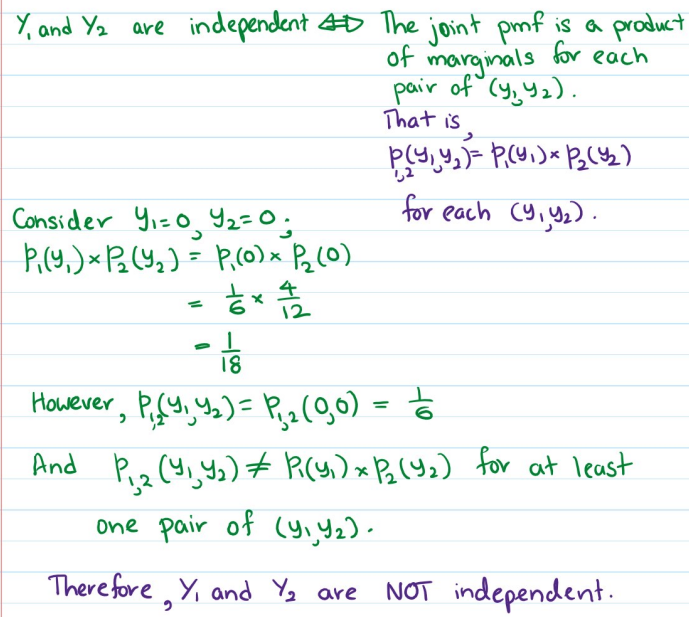 Y₁ and Y₂ are independent ⇔ The joint pmf is a product
of marginals for each
pair of (y₁,y₂).
That is,
p₁,₂(y₁,y₂)= p₁(y₁)×p₂(y₂)
for each (y₁,y₂).
Consider y₁=0, y₂=0;
p₁(y₁)×p₂(y₂) = p₁(0)×p₂(0)
= 1/6 × 4/12
= 1/18
However, p₁,₂(y₁,y₂)= p₁,₂(0,0) = 1/6
And p₁,₂(y₁,y₂) ≠ p₁(y₁)×p₂(y₂) for at least
one pair of (y₁,y₂).
Therefore, Y₁ and Y₂ are NOT independent.